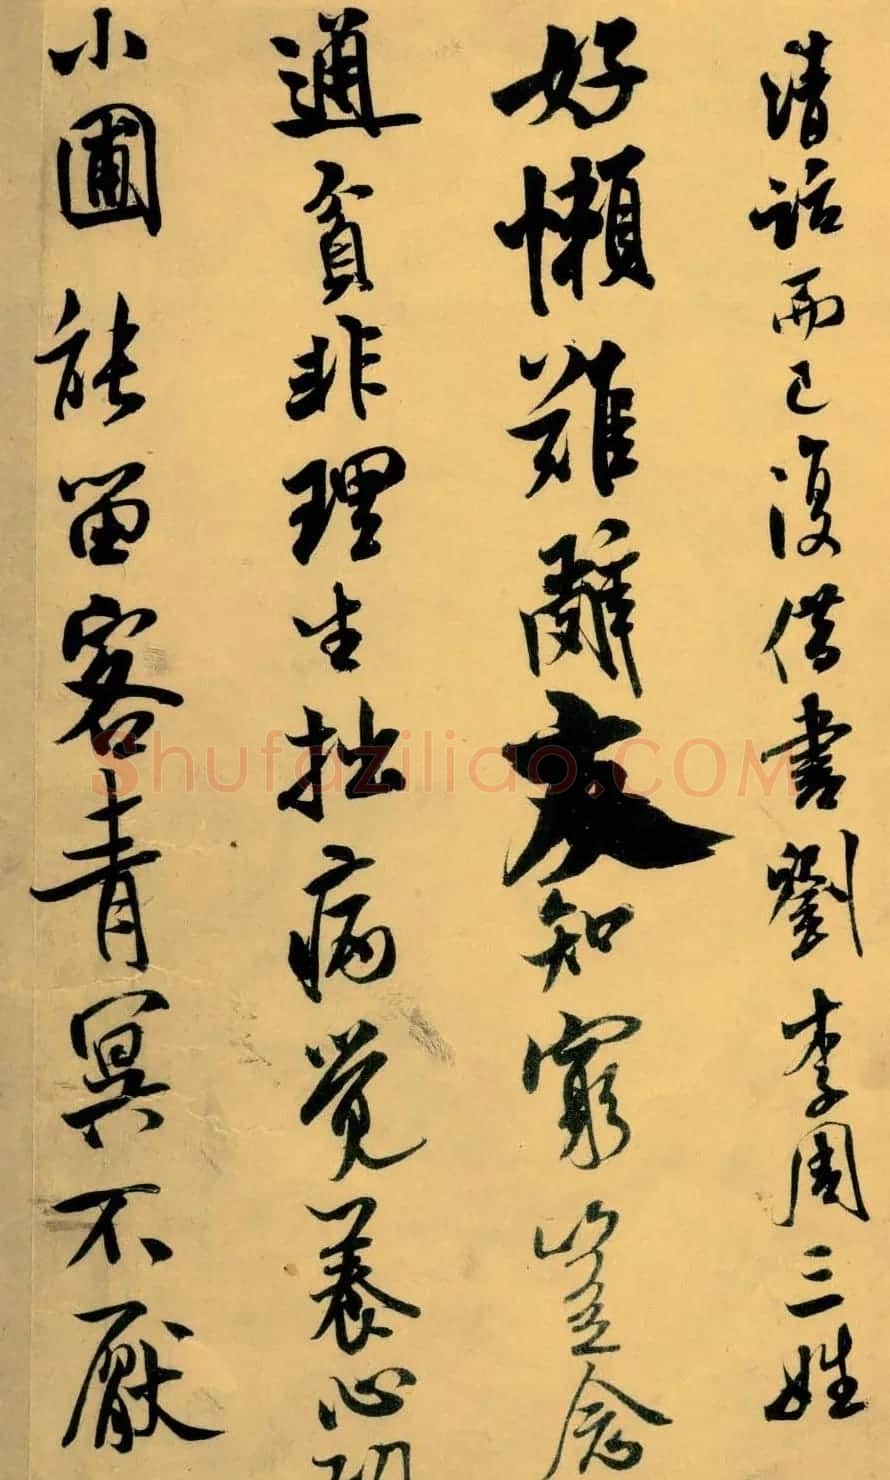 清話而已復借書劉李周三姓
好懶難辭友知窮豈念
通貧非理生拙病覺養心功
小圃能留客青冥不厭
Shufaziliao.COM